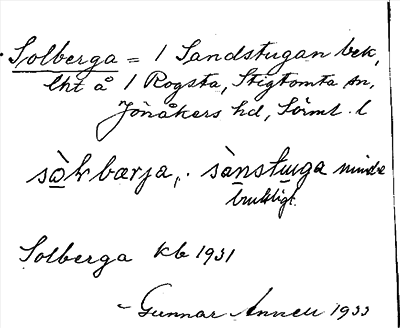 Solberga = 1 Sandstugan bek,
lht å 1 Rogsta, Stigtomta sn,
Jönåkers hd, Sörml. l
sòɫbærja, sànstuga mindre
brukligt.
Solberga kb 1931
Gunnar Annell 1933